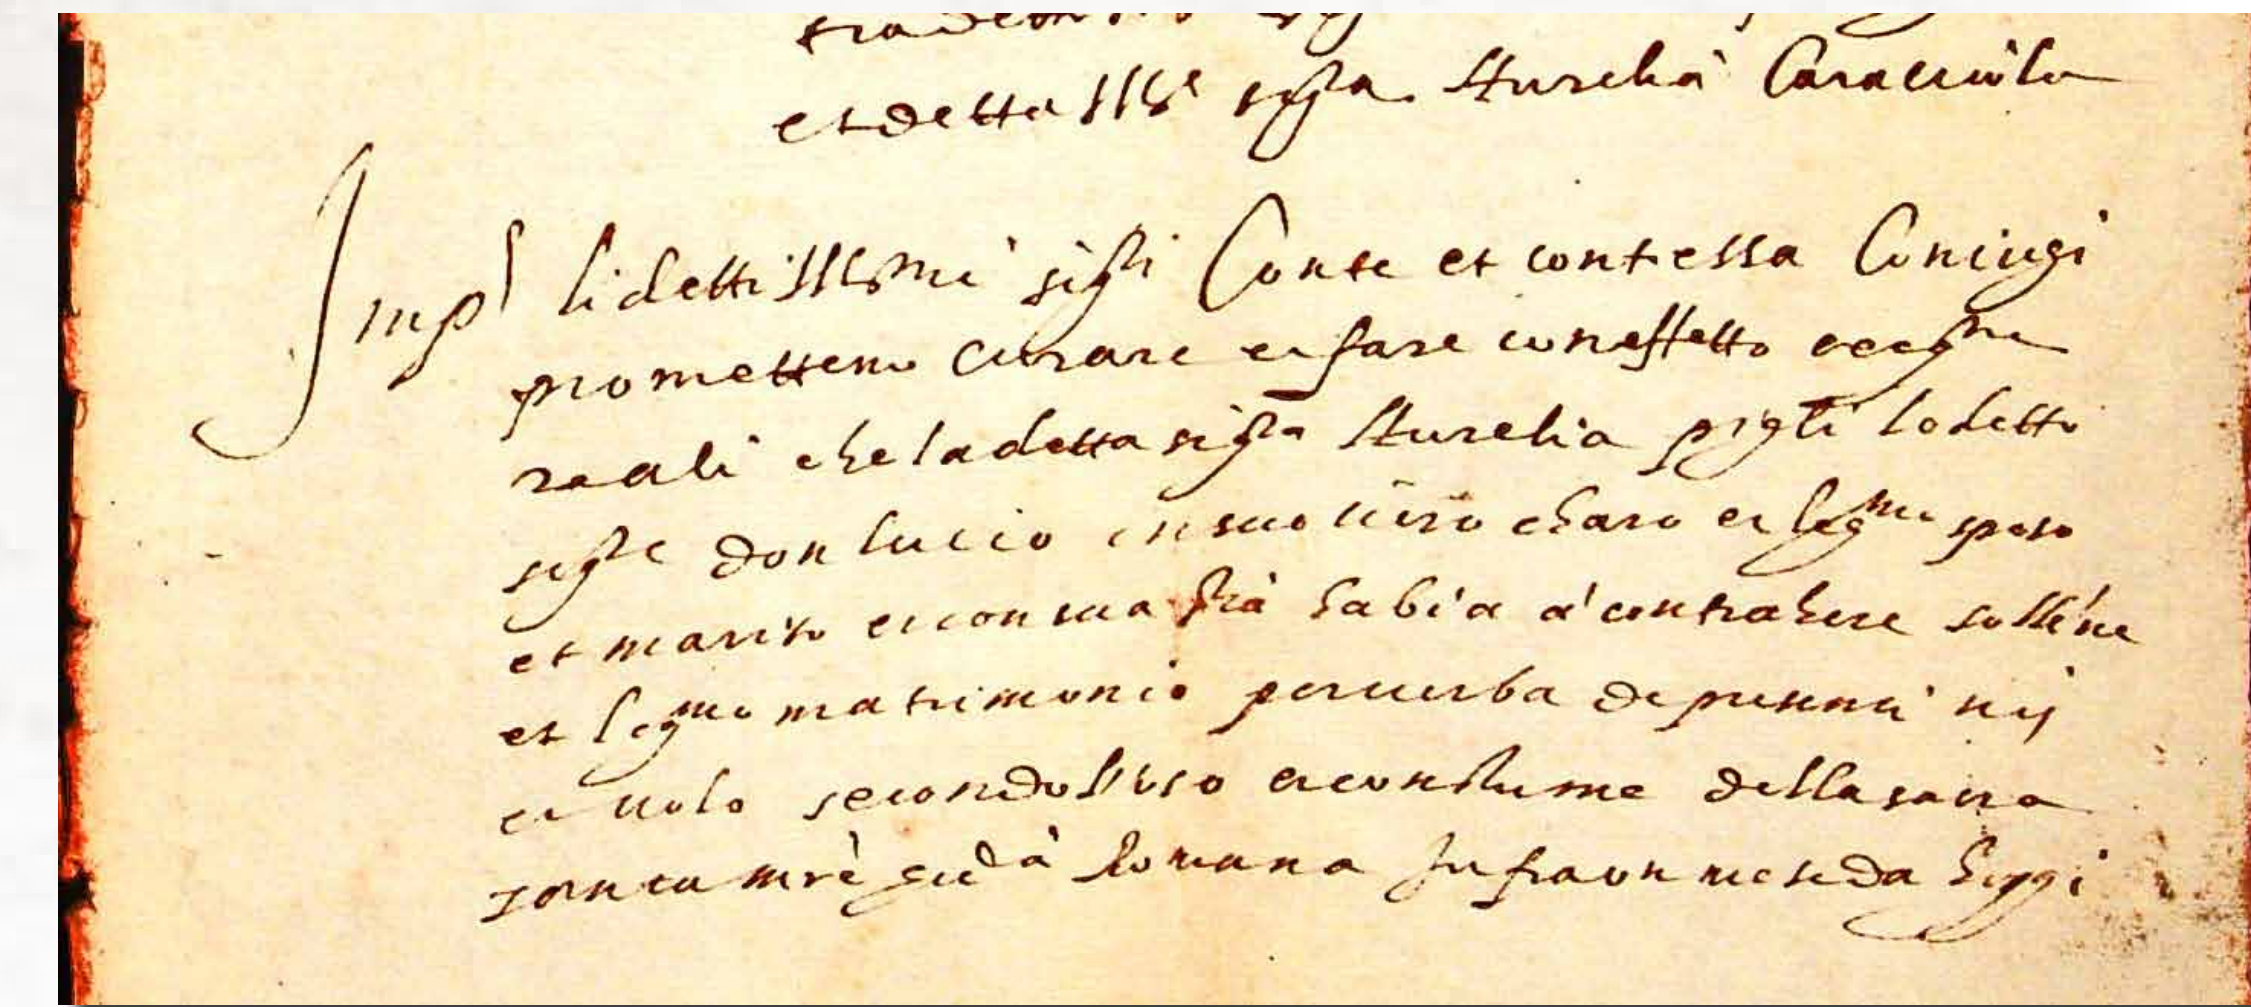 et detta Ill.e sig.ra Aurelia Caracciola
Imp.s li detti Ill.mi sig.ri Conte et contessa Coniugi
prometteno curare et fare con effetto
reali che la detta sig.ra Aurelia pigli lo detto
sig.re don lucio in suo viro charo et leg.mo sposo
et marito et con sua s.ria habia a contrahere sollenne
et leg.mo matrimonio per verba de presenti vis
et volo secondo l'uso et constume della sacra
santa mre romana Infra un mese da hoggi